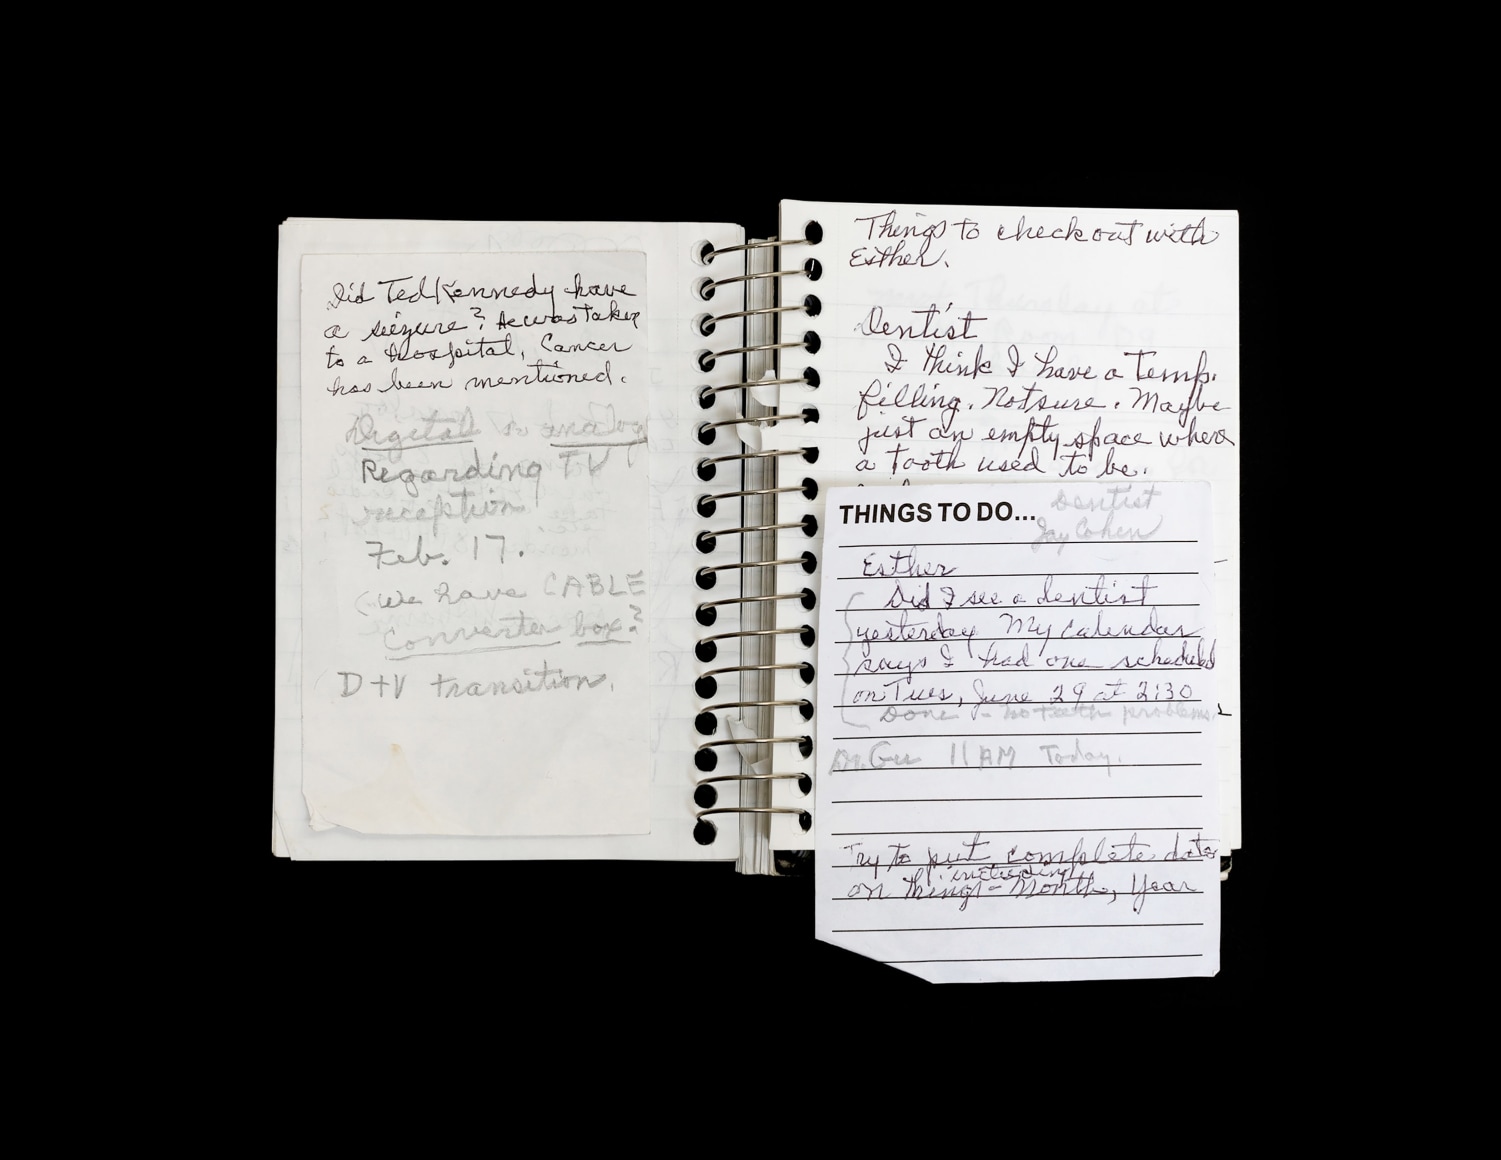 Did Ted Kennedy have
a seizure? He was taken
to a hospital, Cancer
has been mentioned.
Digital vs analog
Regarding TV
reception.
Feb. 17.
(we have CABLE
Converter box?
DTV transition.
Things to check out with
Esther.
Dentist
I think I have a temp.
filling. Not sure. Maybe
just an empty space where
a tooth used to be.
THINGS TO DO...
Dentist
Jay Cohen
Esther
Did I see a dentist
yesterday My calendar
says I had one scheduled
on Tues, June 29 at 2:30
Done - no teeth problems.
Dr. 11 AM Today.
Try to put complete dates
including
on things - Month, Year